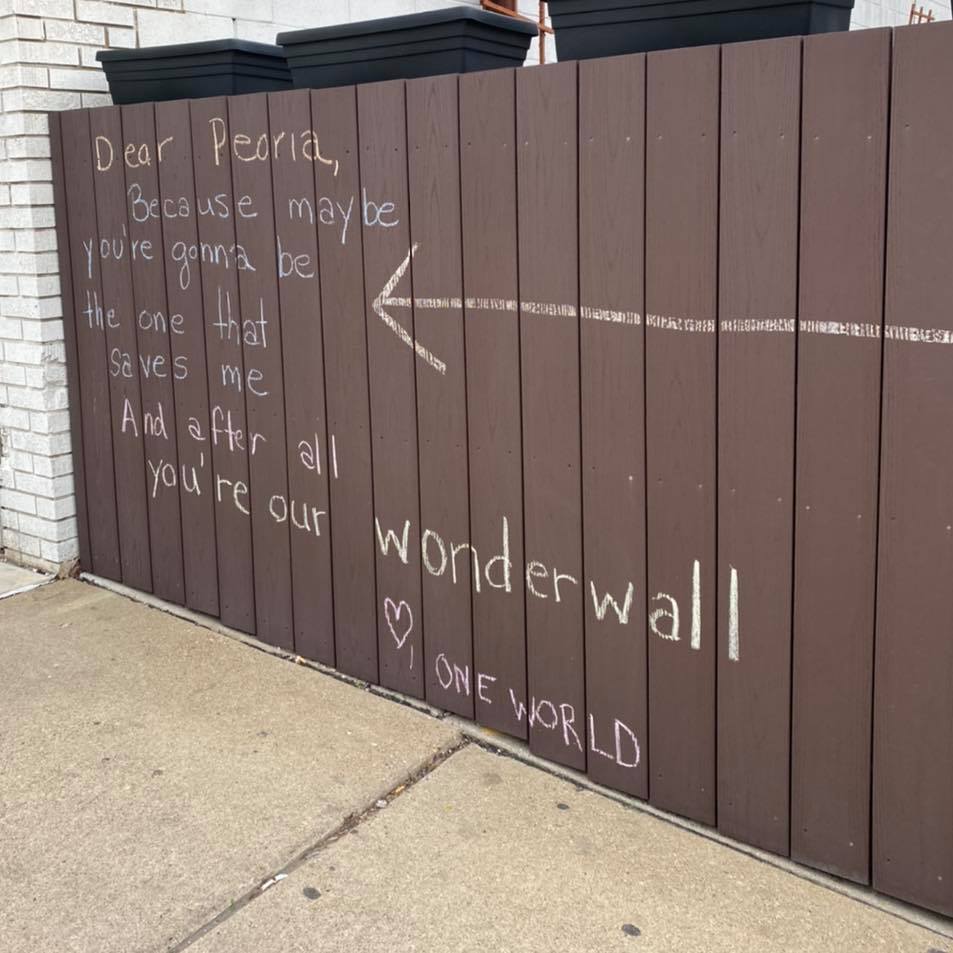 Dear Peoria,
Because maybe
you're gonna be
the one that
saves me
And after all
you're our
wonderwall
♡, ONE WORLD